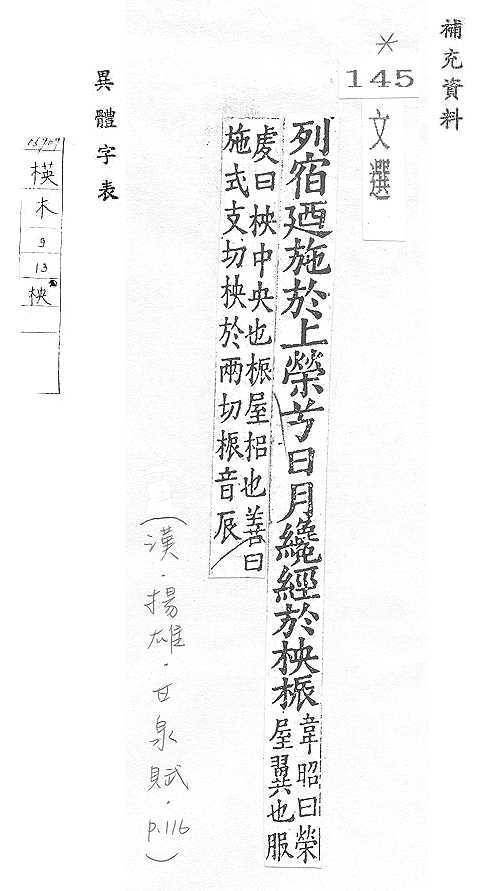 補充資料
*
145
文選
列宿迺施於上榮兮日月纔經於柍桭韋昭曰榮
屋翼也服
虔曰柍中央也桭屋梠也善曰
施式支切柍於兩切桭音辰
(漢.揚雄.甘泉賦.p.116)
異體字表
楧
木
9
13
柍